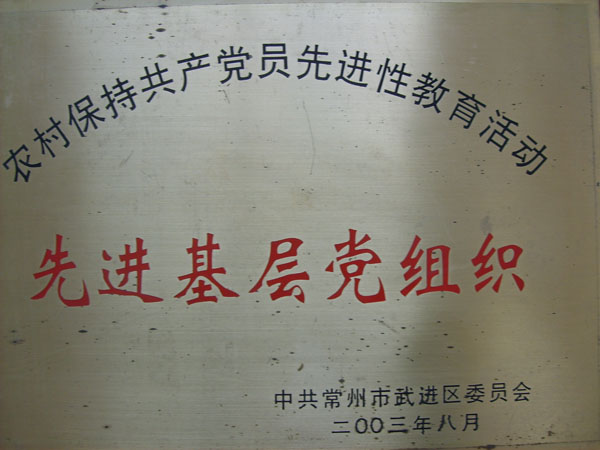 农村保持共产党员先进性教育活动
先进基层党组织
中共常州市武进区委员会
二OO三年八月